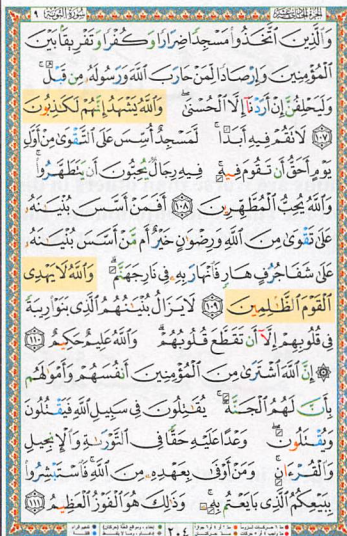 سورة التوبة ٩
وَالَّذِينَ اتَّخَذُوا مَسْجِدًا ضِرَارًا وَكُفْرًا وَتَفْرِيقًا بَيْنَ
الْمُؤْمِنِينَ وَإِرْصَادًا لِّمَنْ حَارَبَ اللَّهَ وَرَسُولَهُ مِن قَبْلُ
وَلَيَحْلِفُنَّ إِنْ أَرَدْنَا إِلَّا الْحُسْنَىٰ وَاللَّهُ يَشْهَدُ إِنَّهُمْ لَكَٰذِبُونَ
١٠٧ لَا تَقُمْ فِيهِ أَبَدًا لَّمَسْجِدٌ أُسِّسَ عَلَى التَّقْوَىٰ مِنْ أَوَّلِ
يَوْمٍ أَحَقُّ أَن تَقُومَ فِيهِ فِيهِ رِجَالٌ يُحِبُّونَ أَن يَتَطَهَّرُوا
وَاللَّهُ يُحِبُّ الْمُطَّهِّرِينَ ١٠٨ أَفَمَنْ أَسَّسَ بُنْيَٰنَهُ
عَلَىٰ تَقْوَىٰ مِنَ اللَّهِ وَرِضْوَٰنٍ خَيْرٌ أَم مَّنْ أَسَّسَ بُنْيَٰنَهُ
عَلَىٰ شَفَا جُرُفٍ هَارٍ فَانْهَارَ بِهِ فِي نَارِ جَهَنَّمَ وَاللَّهُ لَا يَهْدِي
الْقَوْمَ الظَّٰلِمِينَ ١٠٩ لَا يَزَالُ بُنْيَٰنُهُمُ الَّذِي بَنَوْا رِيبَةً
فِي قُلُوبِهِمْ إِلَّا أَن تَقَطَّعَ قُلُوبُهُمْ وَاللَّهُ عَلِيمٌ حَكِيمٌ ١١٠
۞ إِنَّ اللَّهَ اشْتَرَىٰ مِنَ الْمُؤْمِنِينَ أَنفُسَهُمْ وَأَمْوَٰلَهُم
بِأَنَّ لَهُمُ الْجَنَّةَ يُقَٰتِلُونَ فِي سَبِيلِ اللَّهِ فَيَقْتُلُونَ
وَيُقْتَلُونَ وَعْدًا عَلَيْهِ حَقًّا فِي التَّوْرَىٰةِ وَالْإِنجِيلِ
وَالْقُرْءَانِ وَمَنْ أَوْفَىٰ بِعَهْدِهِ مِنَ اللَّهِ فَاسْتَبْشِرُوا
بِبَيْعِكُمُ الَّذِي بَايَعْتُم بِهِ وَذَٰلِكَ هُوَ الْفَوْزُ الْعَظِيمُ ١١١
٢٠٤